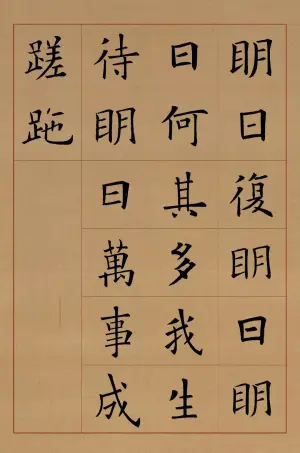 眀日復眀日眀
日何其多我生
待眀日萬事成
蹉跎